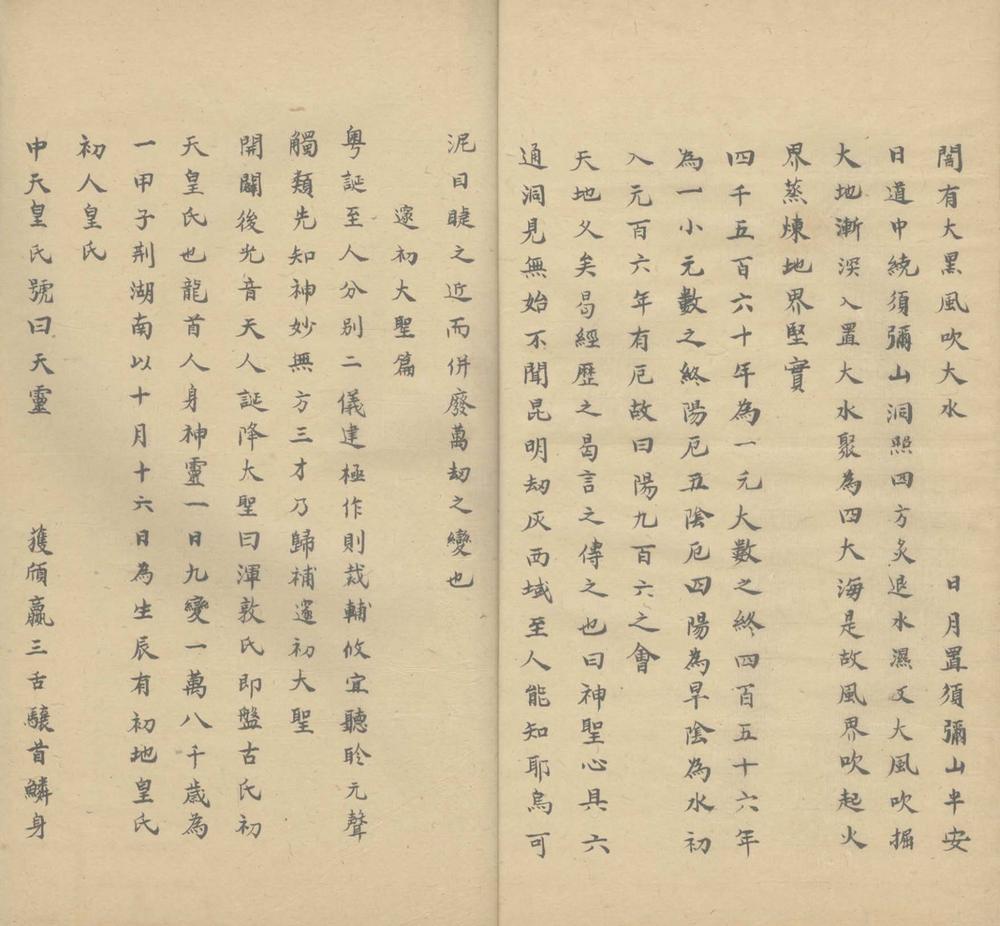 闇有大黑風吹大水　日月置須彌山半安
日道中繞須彌山洞照四方炙退水濕又大風吹掘
大地漸深入置大水聚為四大海是故風界吹起火
界蒸煉地界堅實
四千五百六十年為一元大數之終四百五十六年
為一小元數之終陽厄五陰厄四陽為旱陰為水初
入元百六年有厄故曰陽九百六之會
天地乆矣曷經歷之曷言之傳之也曰神聖心具六
通洞見無始不聞昆明劫灰西域至人能知耶烏可
泥目睫之近而併廢萬劫之變也
邃初大聖篇
粵誕至人分別二儀建極作則裁輔攸宜聽聆元聲
觸類先知神妙無方三才乃歸補邃初大聖
開闢後光音天人誕降大聖曰渾敦氏即盤古氏初
天皇氏也龍首人身神靈一日九變一萬八千歲為
一甲子荆湖南以十月十六日為生辰有初地皇氏
初人皇氏
中天皇氏號曰天靈　頎羸三舌驤首鱗身